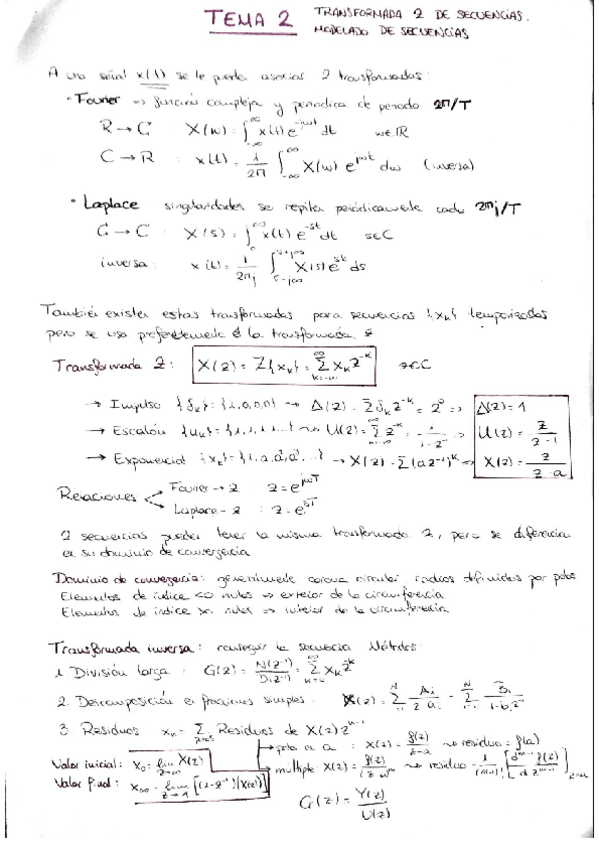 TEMA 2 TRANSFORMADA Z DE SECUENCIAS.
MODELADO DE SECUENCIAS
A una señal x(t) se le puede asociar 2 transformadas:
• Fourier => función compleja y periodica de periodo 2π/T
R → C : X(w) = ∫_{-∞}^{∞} x(t) e^{-jwt} dt w∈R
C → R : x(t) = 1/2π ∫_{-∞}^{∞} X(w) e^{jwt} dw (inversa)
• Laplace singularidades se repiten periódicamente cada 2πj/T
C → C : X(s) = ∫_{0}^{∞} x(t) e^{-st} dt s∈C
inversa: x(t) = 1/2πj ∫_{σ-j∞}^{σ+j∞} X(s) e^{st} ds
También existen estas transformadas para secuencias {x_k} temporizadas
pero se usa preferentemente la transformada z
Transformada Z: X(z) = Z{x_k} = Σ_{k=-∞}^{∞} x_k z^{-k} z∈C
→ Impulso {δ_k} = {1,0,0,0} → Δ(z) = Σ δ_k z^{-k} = z^0 => Δ(z) = 1
→ Escalón {u_k} = {1,1,1,1...} → U(z) = Σ z^{-k} = 1/(1-z^{-1}) => U(z) = z/(z-1)
→ Exponencial {x_k} = {1,a,a²,a³,...} → X(z) = Σ (az^{-1})^k => X(z) = z/(z-a)
Relaciones Fourier → z z = e^{jwT}
Laplace → z : z = e^{sT}
2 secuencias pueden tener la misma transformada z, pero se diferencian
en su dominio de convergencia
Dominio de convergencia: generalmente corona circular, radios definidos por polos
Elementos de índice <0 nulos => exterior de la circunferencia
Elementos de índice nulos => interior de la circunferencia.
Transformada inversa: conseguir la secuencia Métodos:
1. División larga: G(z) = N(z^{-1})/D(z^{-1}) = Σ x_k z^{-k}
2. Descomposición en fracciones simples: X(z) =
3. Residuos x_k = Σ Residuos de X(z) z^{k-1}
→ polo en a : X(z) = f(z)/(z-a) → residuo = f(a)
Valor inicial: x_0 = lim_{z→∞} X(z)
→ múltiple X(z) = f(z)/(z-a)^m → residuo =
Valor final: x_∞ = lim_{z→1} [(1-z^{-1}) X(z)]
G(z) = Y(z)/U(z)